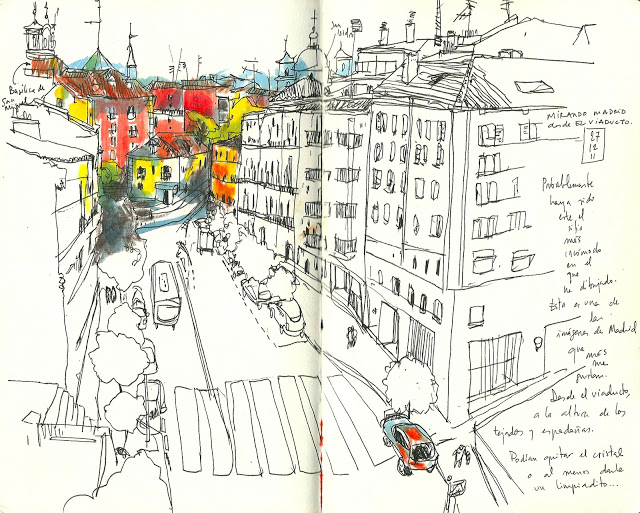 San
Isidro
Basílica de
San
Miguel
MIRANDO MADRID
desde EL VIADUCTO.
27
12
11
Probablemente
haya sido
este el
sitio
más
incómodo
en el
que
he dibujado.
Esta es una de
las
imágenes de Madrid
que más
me
gustan.
Desde el viaducto,
a la altura de los
tejados y espadañas.
Podían quitar el cristal
o al menos darle
un limpiadito...